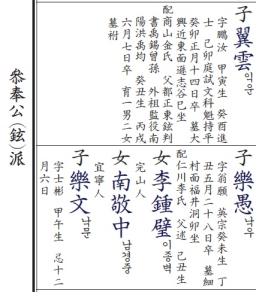 子翼雲익운
字鵬汝 甲寅生 癸酉進
士 己卯庭試文科魁持平
癸卯正月十四日卒 墓大
興近東面遜志谷巳坐
配商山金氏 父都正東鉉判
書禹錫曾孫 外祖監役南
陽洪禹均 癸丑生 丙戌
六月七日卒 育一男二女
墓祔
子樂愚낙우
字翁願 英宗癸未生 丁
丑五月二十八日卒 墓細
村面福井洞卯坐
配仁川李氏 父述 己丑生
女李鍾璧이종벽
完山人
女南敬中남경중
宜寧人
子樂文낙문
字士彬 甲午生 忌十二
月六日
叅奉公(鉉)派